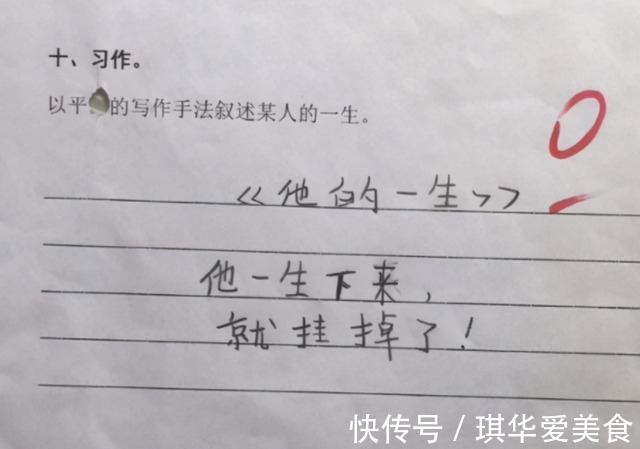 十、习作。
以平的写作手法叙述某人的一生。
0
《他的一生》
他一生下来,
就挂掉了!
快传号 / 琪华爱美食